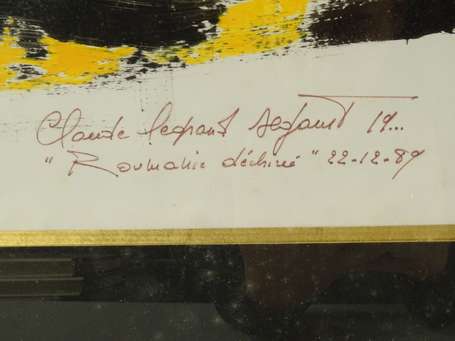 Claude Legrand Segaust 19...
"Roumanie déchiré" 22-12-89